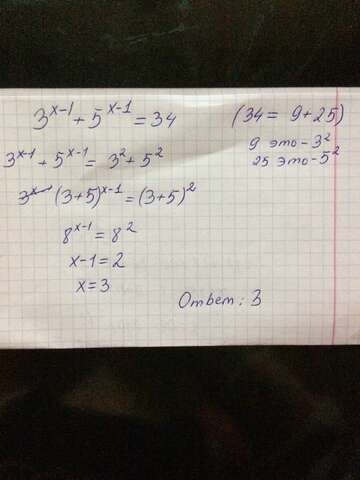 3^(x-1) + 5^(x-1) = 34
(34 = 9+25)
9 это - 3²
25 это - 5²
3^(x-1) + 5^(x-1) = 3² + 5²
(3+5)^(x-1) = (3+5)²
8^(x-1) = 8²
x-1 = 2
x = 3
Ответ: 3